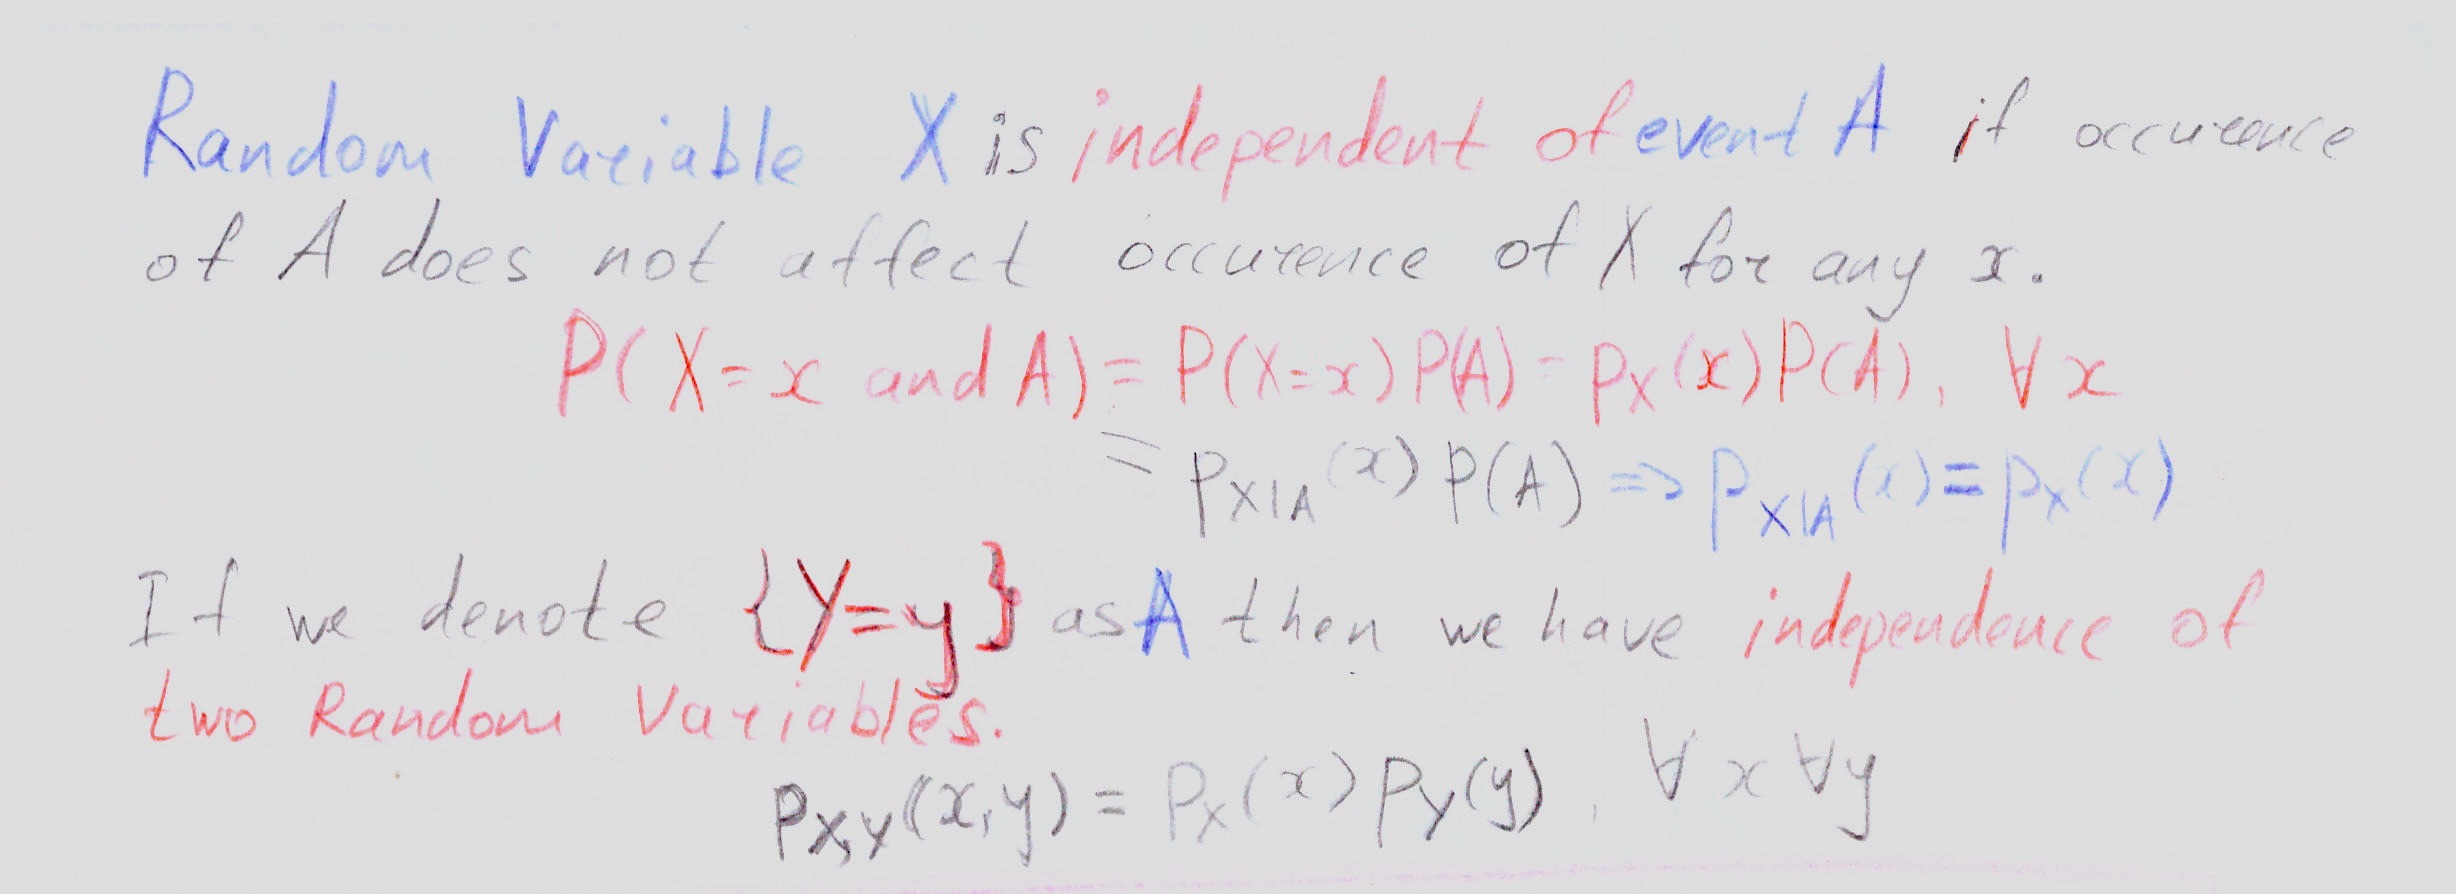 Random Variable X is independent of event A if occurence
of A does not affect occurence of X for any x.
P(X=x and A) = P(X=x)P(A) = p_X(x)P(A), ∀x
= p_{X|A}(x)P(A) ⇒ p_{X|A}(x) = p_X(x)
If we denote {Y=y} as A then we have independence of
two Random Variables.
p_{X,Y}(x,y) = p_X(x)p_Y(y), ∀x∀y